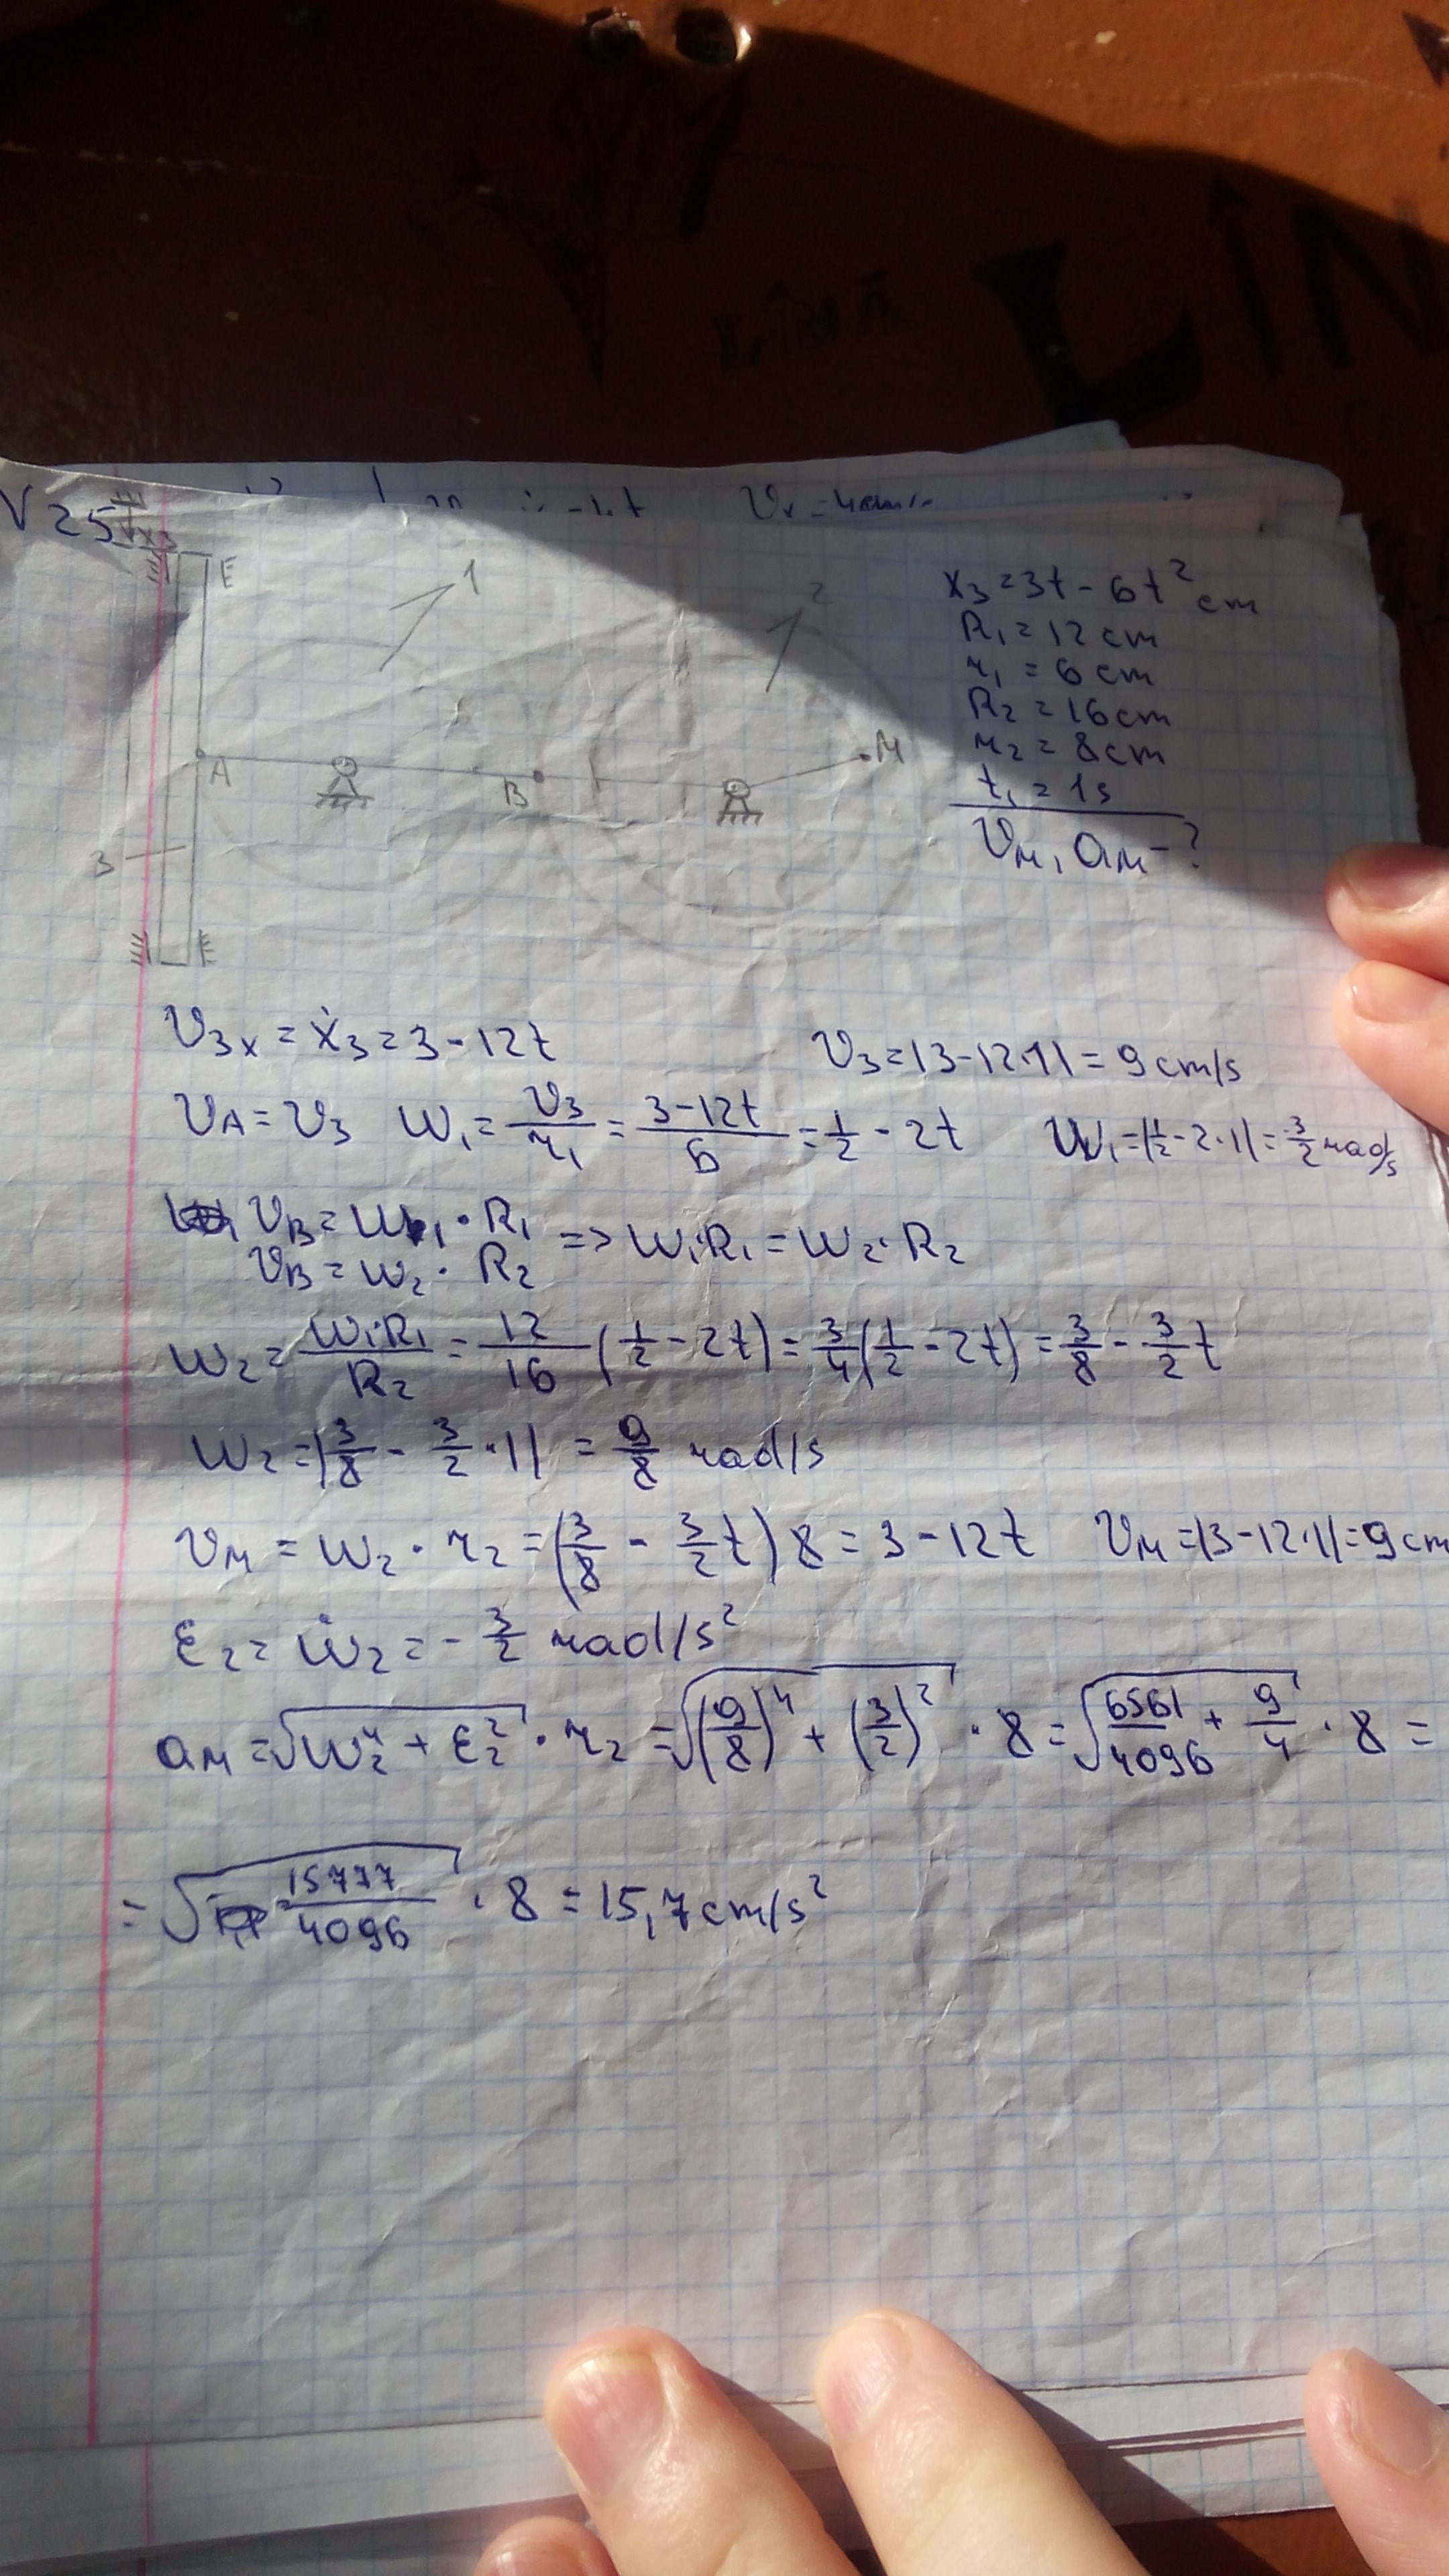 LÎN
V 25
E
1
2
A
B
M
3
x₃=3t-6t² cm
R₁=12 cm
r₁=6 cm
R₂=16 cm
r₂=8 cm
t₁=1s
v_M, a_M-?
v₃ₓ=ẋ₃=3-12t v₃=|3-12·1|=9 cm/s
v_A=v₃ ω₁=v₃/r₁=(3-12t)/6=1/2-2t ω₁=|1/2-2·1|=3/2 rad/s
v_B=ω₁·R₁
v_B=ω₂·R₂ => ω₁·R₁=ω₂·R₂
ω₂=ω₁·R₁/R₂=12/16(1/2-2t)=3/4(1/2-2t)=3/8-3/2t
ω₂=|3/8-3/2·1|=9/8 rad/s
v_M=ω₂·r₂=(3/8-3/2t)8=3-12t v_M=|3-12·1|=9cm
ε₂=ω̇₂=-3/2 rad/s²
a_M=√(ω₂⁴+ε₂²)·r₂=√((9/8)⁴+(3/2)²)·8=√(6561/4096+9/4)·8=
=√(15777/4096)·8=15,7cm/s²